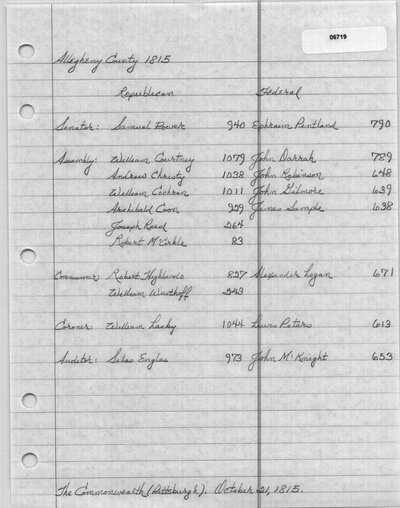 06719
Allegheny County 1815
Republican Federal
Senator: Samuel Power 940 Ephraim Pentland 790
Assembly: William Courtney 1079 John Darrah 789
Andrew Christy 1038 John Robinson 648
William Cochran 1011 John Gilmore 639
Archibald Coon 929 James Semple 638
Joseph Reed 264
Robert McCorkle 23
Commissioner: Robert Highlands 827 Alexander Logan 671
William 243
Coroner: William Lecky 1044 Lewis Peters 613
Auditor: Silas Engles 973 John McKnight 653
The Commonwealth (Pittsburgh). October 21, 1815.